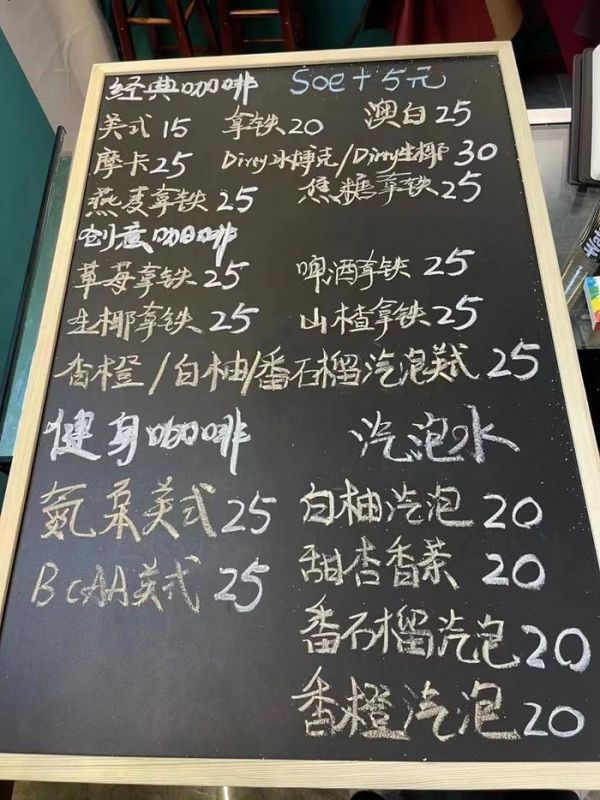 经典咖啡 Soe+5元
美式15 拿铁20 澳白25
摩卡25 Dirty冰博克/Dirty生椰 30
燕麦拿铁25 焦糖拿铁25
创意咖啡
草莓拿铁25 啤酒拿铁25
生椰拿铁25 山楂拿铁25
香橙/白柚/番石榴汽泡美式 25
健身咖啡 汽泡水
氮泵美式25 白柚汽泡20
BCAA美式25 甜杏香茶20
番石榴汽泡20
香橙汽泡20